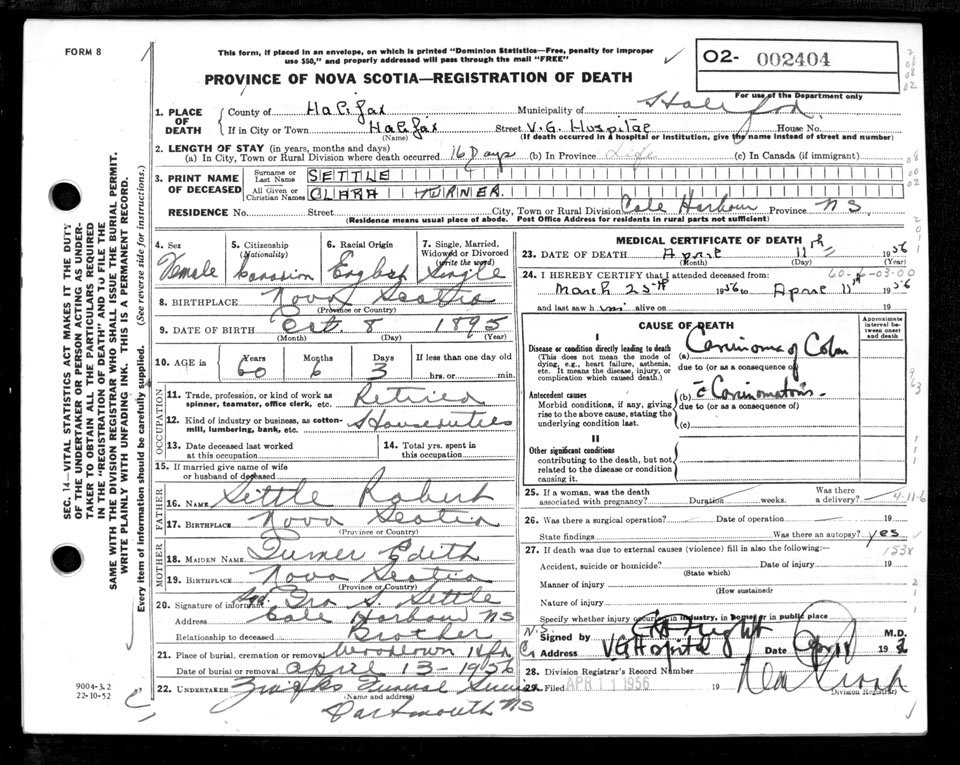 FORM 8
This form, if placed in an envelope, on which is printed "Dominion Statistics—Free, penalty for improper
use $50," and properly addressed will pass through the mail "FREE"
O2- 002404
For use of the Department only
PROVINCE OF NOVA SCOTIA—REGISTRATION OF DEATH
1. PLACE OF DEATH
County of Halifax Municipality of
If in City or Town Halifax Street V.G. Hospital House No.
(Name) (If death occurred in a hospital or institution, give the name instead of street and number)
2. LENGTH OF STAY (in years, months and days)
(a) In City, Town or Rural Division where death occurred 16 Days (b) In Province Life (c) In Canada (if immigrant)
3. PRINT NAME OF DECEASED
Surname or Last Name SETTLE
All Given or Christian Names CLARA TURNER.
RESIDENCE No. Street City, Town or Rural Division Cole Harbour Province NS
(Residence means usual place of abode. Post Office Address for residents in rural parts not sufficient)
4. Sex Female
5. Citizenship (Nationality) Canadian
6. Racial Origin English
7. Single, Married, Widowed or Divorced (write the word) Single
8. BIRTHPLACE Nova Scotia
(Province or Country)
9. DATE OF BIRTH Oct. 8 1895
(Month) (Day) (Year)
10. AGE in Years 60 Months 6 Days 3 If less than one day old
hrs. or min.
OCCUPATION
11. Trade, profession, or kind of work as spinner, teamster, office clerk, etc. Retired
12. Kind of industry or business, as cotton-mill, lumbering, bank, etc. Houseduties
13. Date deceased last worked at this occupation
14. Total yrs. spent in this occupation
15. If married give name of wife or husband of deceased
FATHER
16. NAME Settle Robert
17. BIRTHPLACE Nova Scotia
(Province or Country)
MOTHER
18. MAIDEN NAME Turner Edith
19. BIRTHPLACE Nova Scotia
(Province or Country)
20. Signature of informant Sgd. Ira S. Settle
Address Cole Harbour NS
Relationship to deceased Brother
21. Place of burial, cremation or removal Woodlawn Hfx
Date of burial or removal April 13-1956
22. UNDERTAKER Funeral Service
(Name and address)
Dartmouth NS
MEDICAL CERTIFICATE OF DEATH
23. DATE OF DEATH April 11th 1956
(Month) (Day) (Year)
60-6-03-00
24. I HEREBY CERTIFY that I attended deceased from
March 25th 1956 to April 11th 1956
and last saw h alive on 19
CAUSE OF DEATH
Approximate interval between onset and death
I
Disease or condition directly leading to death
(This does not mean the mode of dying, e.g., heart failure, asthenia, etc. It means the disease, injury, or complication which caused death.)
(a) Carcinoma of Colon
due to (or as a consequence of)
Antecedent causes
Morbid conditions, if any, giving rise to the above cause, stating the underlying condition last.
(b) c̄ Carcinomatosis
due to (or as a consequence of)
(c)
II
Other significant conditions
contributing to the death, but not related to the disease or condition causing it.
25. If a woman, was the death associated with pregnancy? Duration weeks. Was there a delivery? 4-11-6
26. Was there a surgical operation? Date of operation 19
State findings Was there an autopsy? yes
27. If death was due to external causes (violence) fill in also the following:—
Accident, suicide or homicide? Date of injury 19
(State which)
Manner of injury
(How sustained)
Nature of injury
Specify whether injury occurred in industry, in home, or in public place
Signed by M.D.
Address VG Hospital Date 19
28. Division Registrar's Record Number
29. Filed APR 11 1956 19
Division Registrar
SEC. 14—VITAL STATISTICS ACT MAKES IT THE DUTY
OF THE UNDERTAKER OR PERSON ACTING AS UNDER-
TAKER TO OBTAIN ALL THE PARTICULARS REQUIRED
IN THE "REGISTRATION OF DEATH" AND TO FILE THE
SAME WITH THE DIVISION REGISTRAR WHO SHALL ISSUE THE BURIAL PERMIT.
WRITE PLAINLY WITH UNFADING INK. THIS IS A PERMANENT RECORD.
Every item of information should be carefully supplied. (See reverse side for instructions.)
9004-3.2
22-10-52